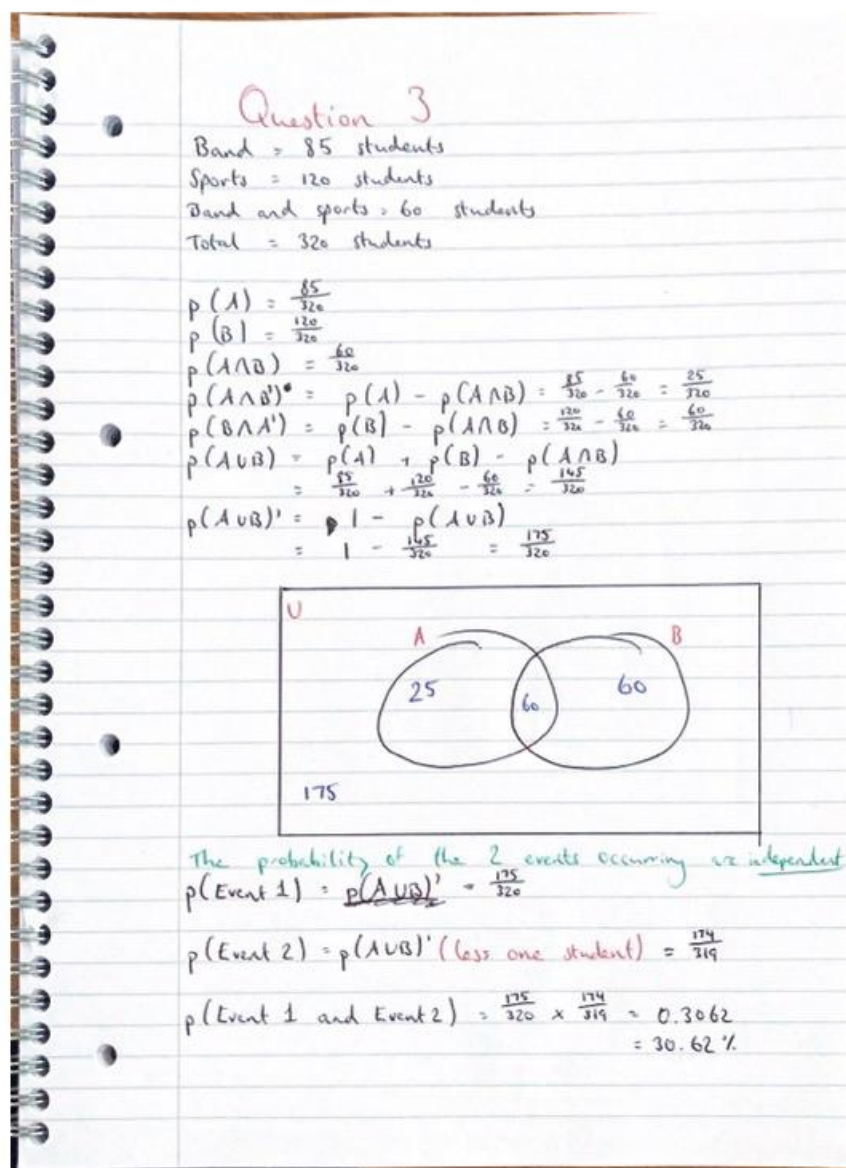 Question 3
Band = 85 students
Sports = 120 students
Band and sports = 60 students
Total = 320 students
p(A) = 85/320
p(B) = 120/320
p(A∩B) = 60/320
p(A∩B') = p(A) - p(A∩B) = 85/320 - 60/320 = 25/320
p(B∩A') = p(B) - p(A∩B) = 120/320 - 60/320 = 60/320
p(A∪B) = p(A) + p(B) - p(A∩B)
= 85/320 + 120/320 - 60/320 = 145/320
p(A∪B)' = 1 - p(A∪B)
= 1 - 145/320 = 175/320
U
A B
25 60 60
175
The probability of the 2 events occurring are independent
p(Event 1) = p(A∪B)' = 175/320
p(Event 2) = p(A∪B)' (less one student) = 174/319
p(Event 1 and Event 2) = 175/320 × 174/319 = 0.3062
= 30.62 %